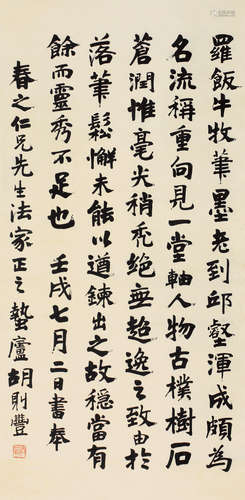 羅飯牛牧筆墨老到邱壑渾成頗為
名流稱重向見一堂軸人物古樸樹石
蒼潤惟毫尖稍禿絕無超逸之致由於
落筆鬆懈未能以遒鍊出之故穩當有
餘而靈秀不足也 壬戌七月二日書奉
春之仁兄先生法家正之 蟄廬胡則豐